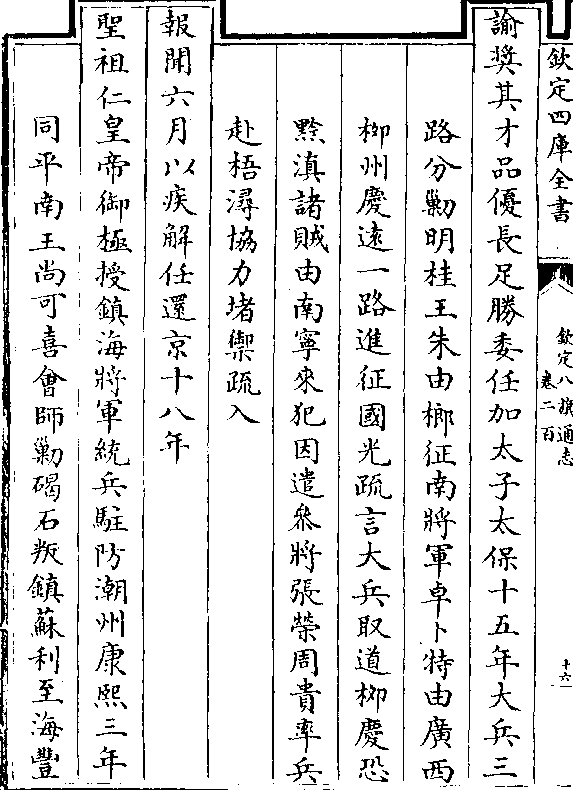 欽定四庫全書
欽定八旗通志
卷二百
十六
諭奬其才品優長足勝委任加太子太保十五年大兵三
路分勦明桂王朱由榔征南將軍卓卜特由廣西
栁州慶遠一路進征國光疏言大兵取道栁慶恐
黔滇諸賊由南寧來犯因遣叅將張榮周貴率兵
赴梧潯協力堵禦疏入
報聞六月以疾解任還京十八年
聖祖仁皇帝御極授鎮海將軍統兵駐防潮州康熙三年
同平南王尚可喜會師勦碣石叛鎮蘇利至海豐